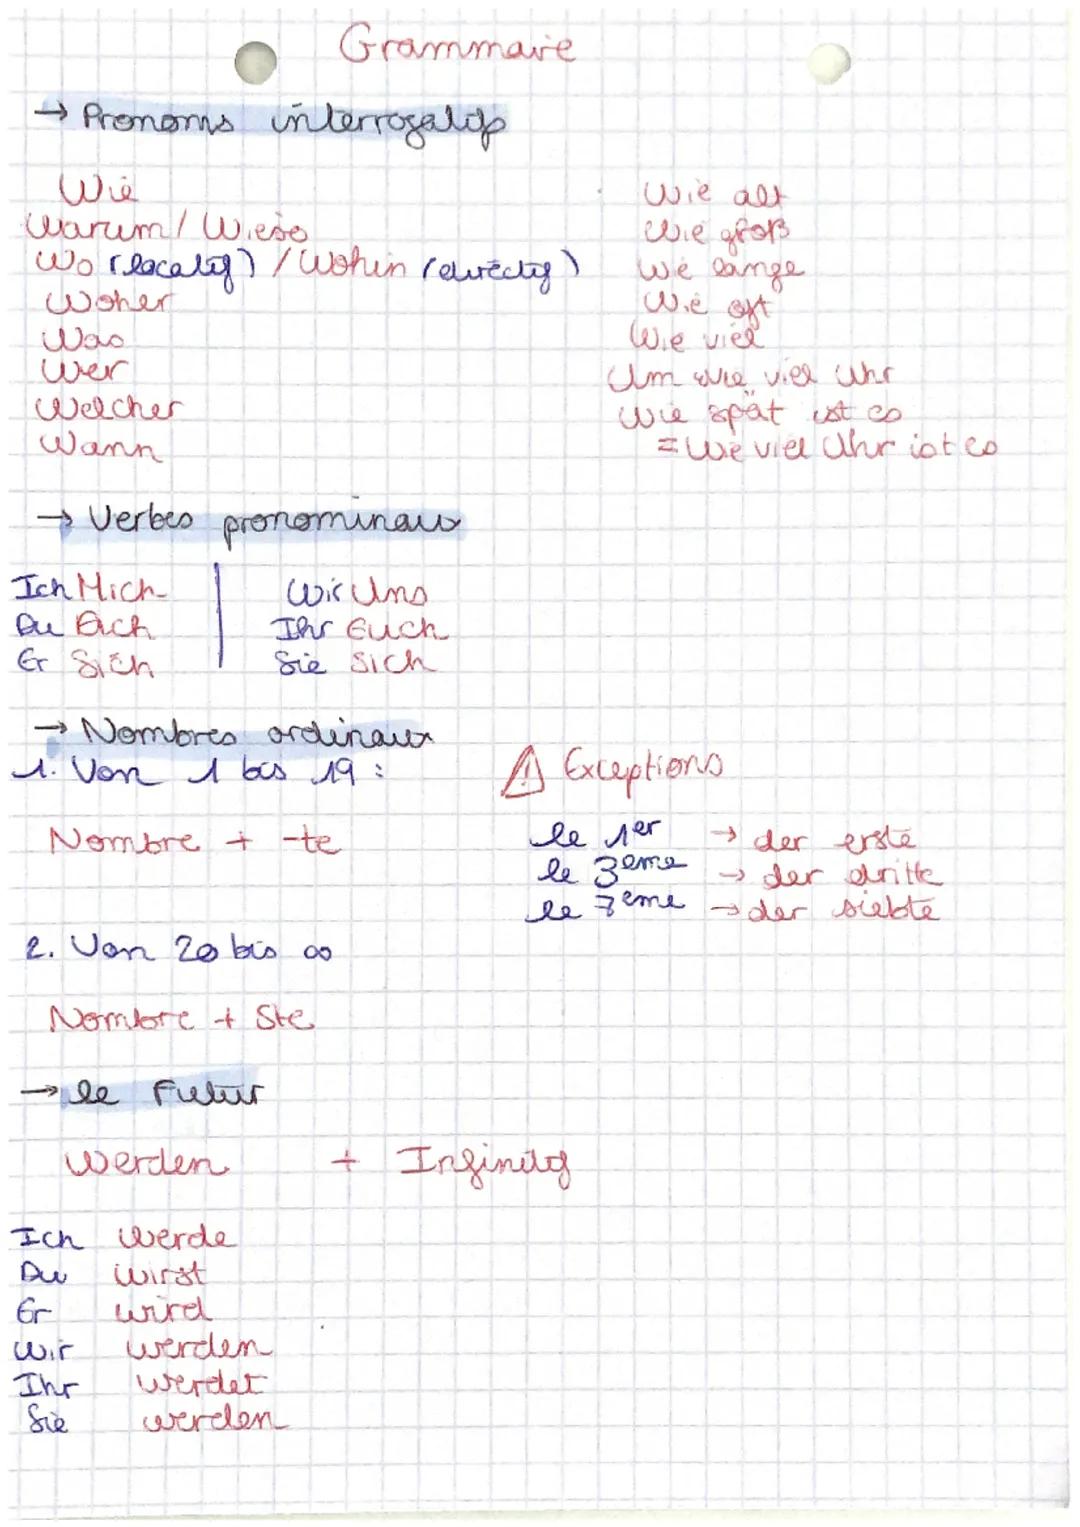 Grammaire
→ Pronoms interrogatifs
Wie
Warum / Wieso
Wo (locatif) / Wohin (directif)
Woher
Was
Wer
Welcher
Wann
Wie alt
Wie groß
Wie lange
Wie oft
Wie viel
Um wie viel Uhr
Wie spät ist es
= Wie viel Uhr ist es
→ Verbes pronominaux
Ich Mich
Du Dich
Er Sich
Wir Uns
Ihr Euch
Sie Sich
→ Nombres ordinaux
1. Von 1 bis 19 :
Nombre + -te
⚠ Exceptions
le 1er → der erste
le 3eme → der dritte
le 7eme → der siebte
2. Von 20 bis ∞
Nombre + Ste
→ le Futur
Werden + Infinitif
Ich werde
Du wirst
Er wird
Wir werden
Ihr werdet
Sie werden